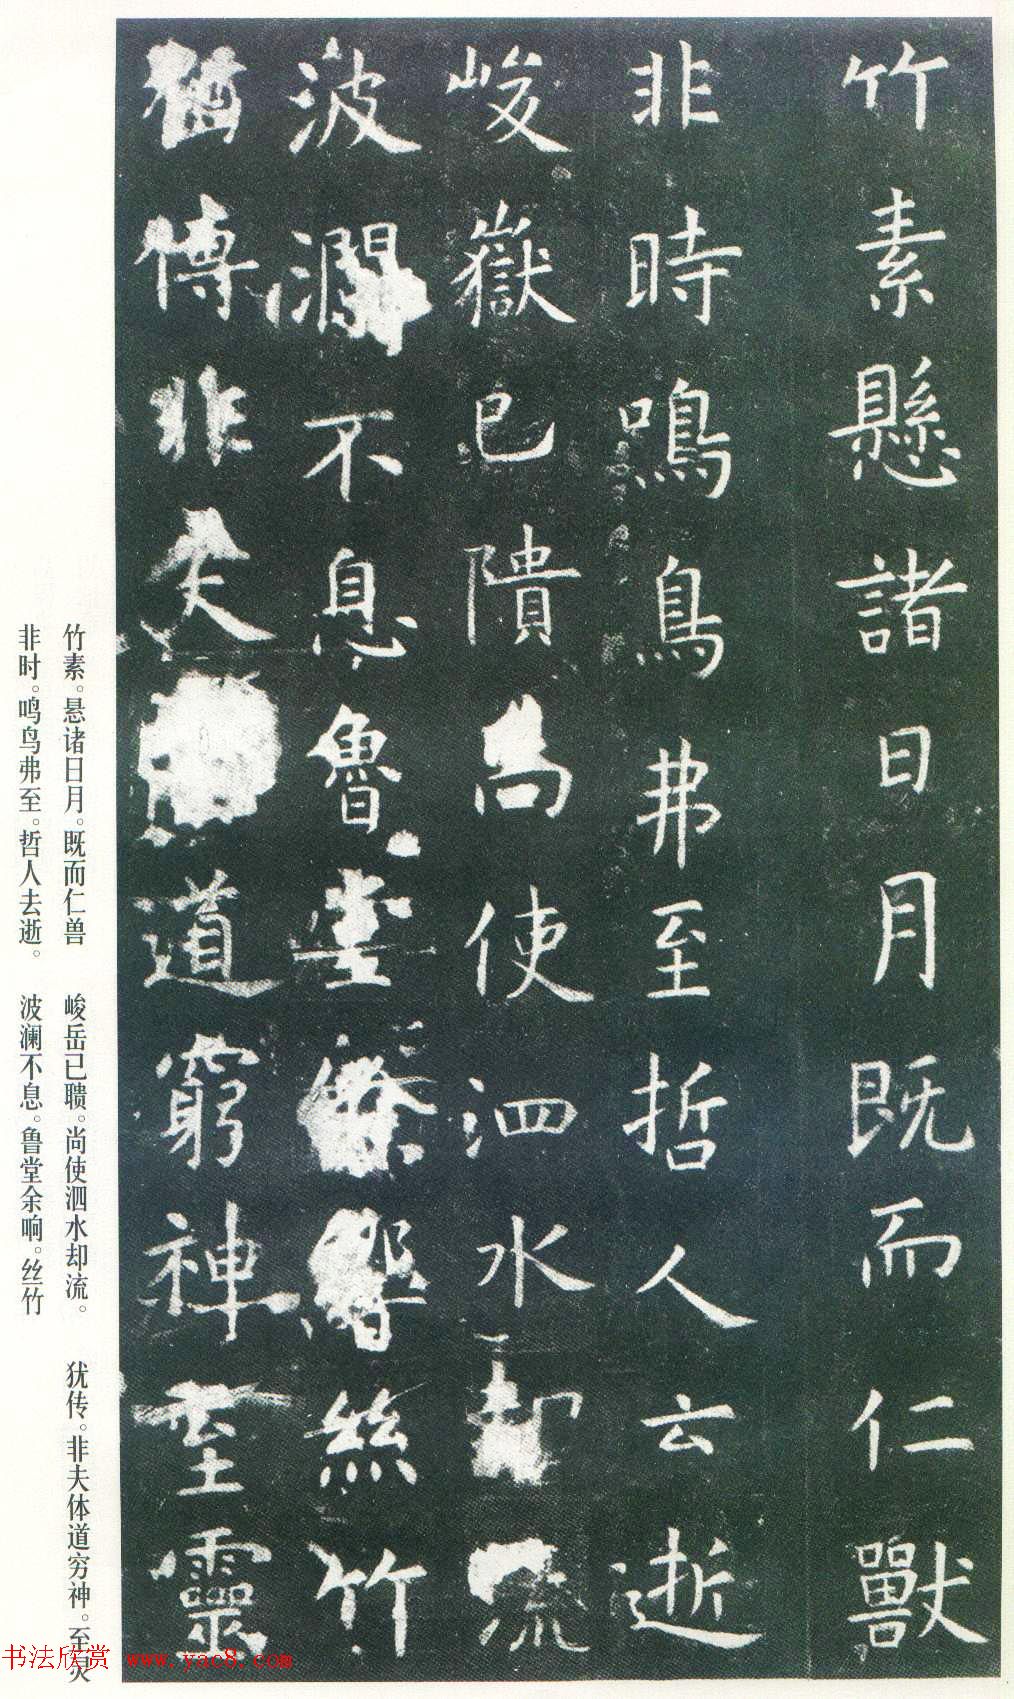 竹素懸諸日月既而仁獸
非時鳴鳥弗至哲人云逝
峻嶽已隤尚使泗水却流
波瀾不息魯堂餘響絲竹
猶傳非夫道窮神至靈
竹素。悬诸日月。既而仁兽
非时。鸣鸟弗至。哲人去逝。
峻岳已聩。尚使泗水却流。
波澜不息。鲁堂余响。丝竹
犹传。非夫体道穷神。至灵
书法欣赏 www.yac8.com